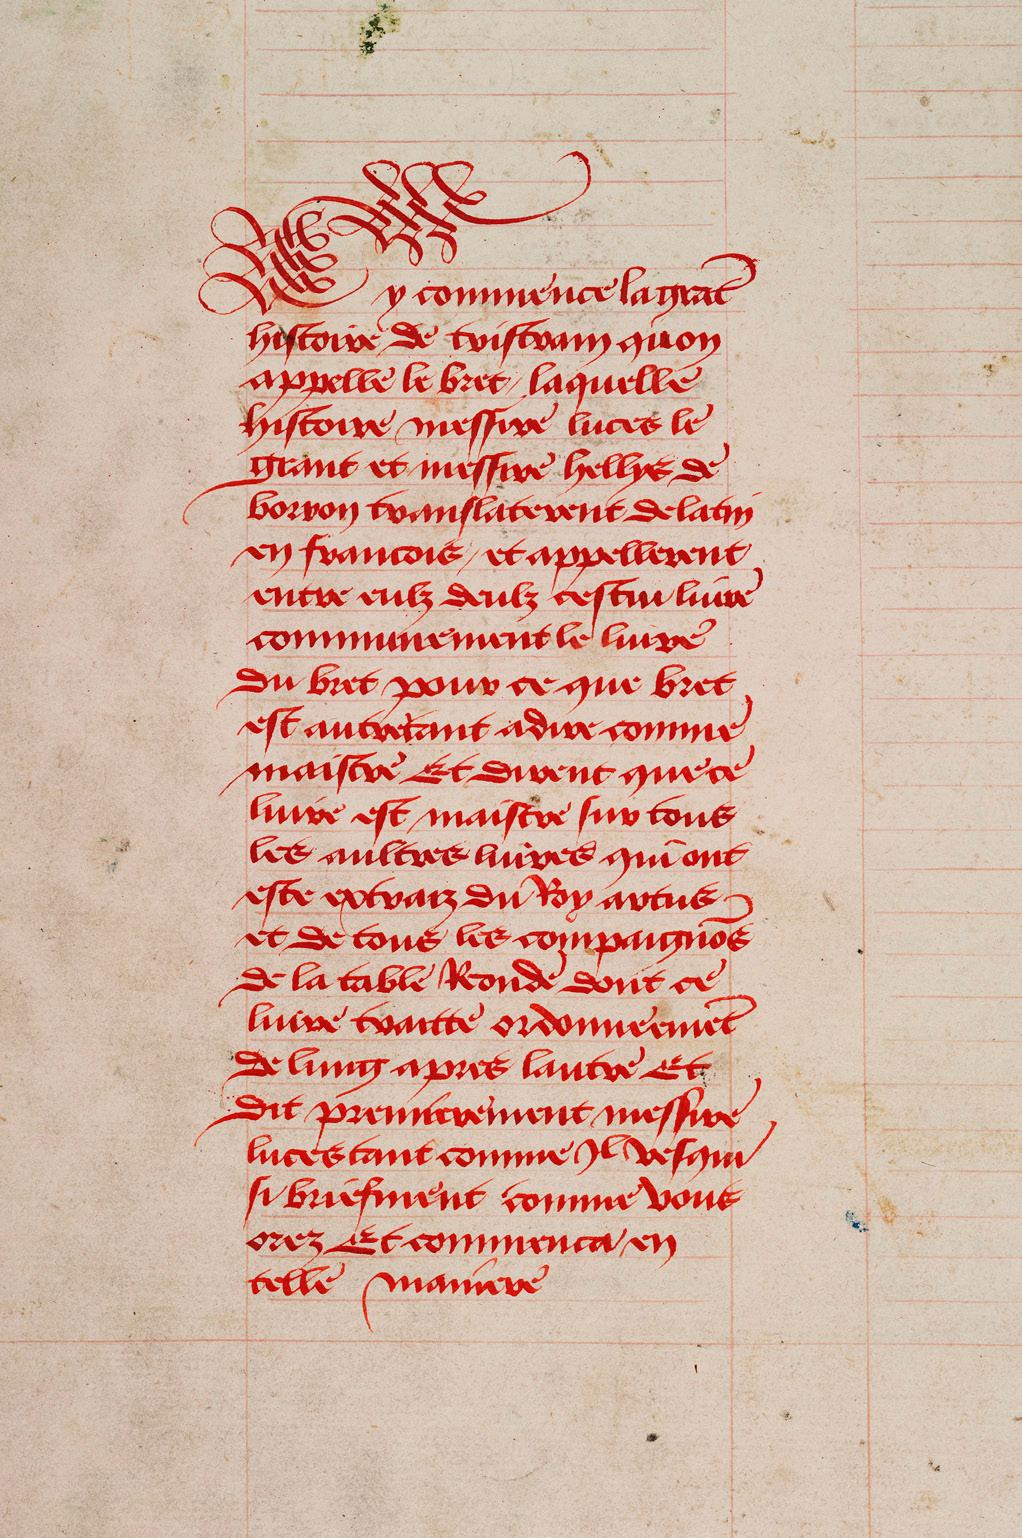 Cy commence la grāt
histoire de tristram quon
appelle le bret / laquelle
histoire messire luces le
grant et messire hellys de
borron translaterent de latin
en francois / et appellerent
entre eulz deulz cestui livre
communement le livre
du bret pour ce que bret
est autretant adire comme
maistre Et dirent que ce
livre est maistre sur tous
les aultres livres qui ont
este extraiz du Roy artus
et de tous les compaignōs
de la table Reonde dont ce
livre traitte ordonneemēt
de lung apres lautre Et
dit premierement messire
luces tant comme Jl vesqui
si briefment comme vous
orez Et commenca en
telle maniere